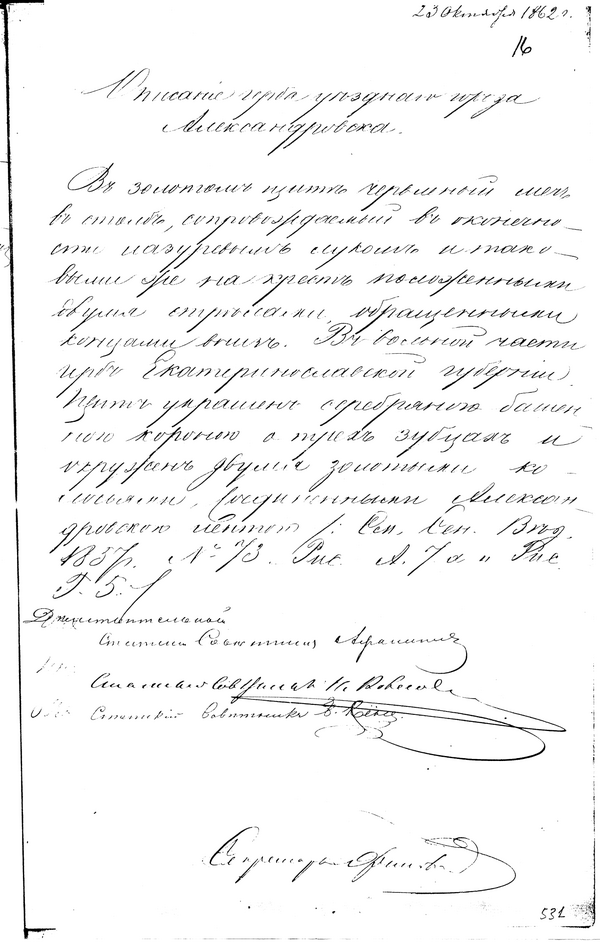 23 Октября 1862 г.
16
Описаніе герба уѣзднаго города
Александровска.
Въ золотомъ щитѣ червленный мечъ
въ столбъ, сопровождаемый въ оконечно-
сти лазуревымъ лукомъ и тако-
выми же на крестъ положенными
двумя стрѣлами, обращенными
концами внизъ. Въ вольной части
гербъ Екатеринославской губерніи.
Щитъ украшенъ серебряною башен-
ною короною о трехъ зубцахъ и
окруженъ двумя золотыми ко-
лосьями, соединенными Алексан-
дровскою лентою /: Сен. Вѣд.
1857 г. № 73. Рис. А. 7 а и Рис.
Г. 5. /
Дѣйствительной
Статскій Совѣтникъ
Статскій Совѣтникъ
Статскій Совѣтникъ Б. Кёне
Секретарь
531